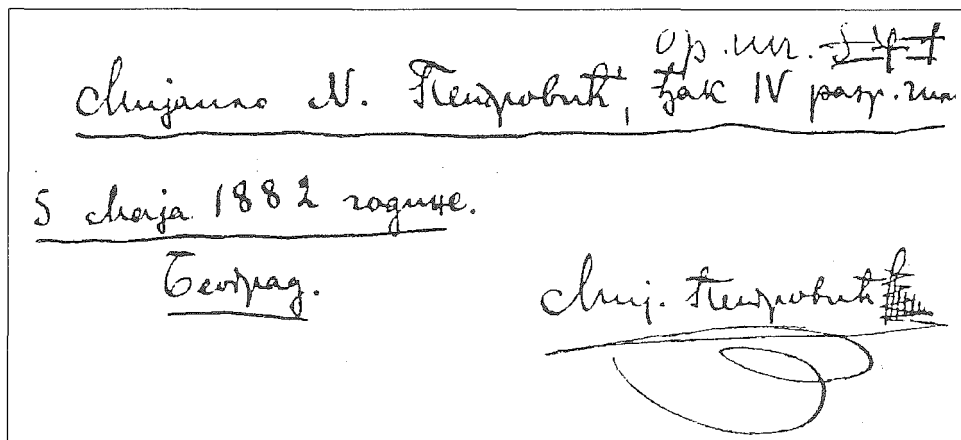 Ор. инг.
Мијалко М. Петровић, ђак IV разр. гим
5 Маја 1882 године.
Београд.
Миј. Петровић